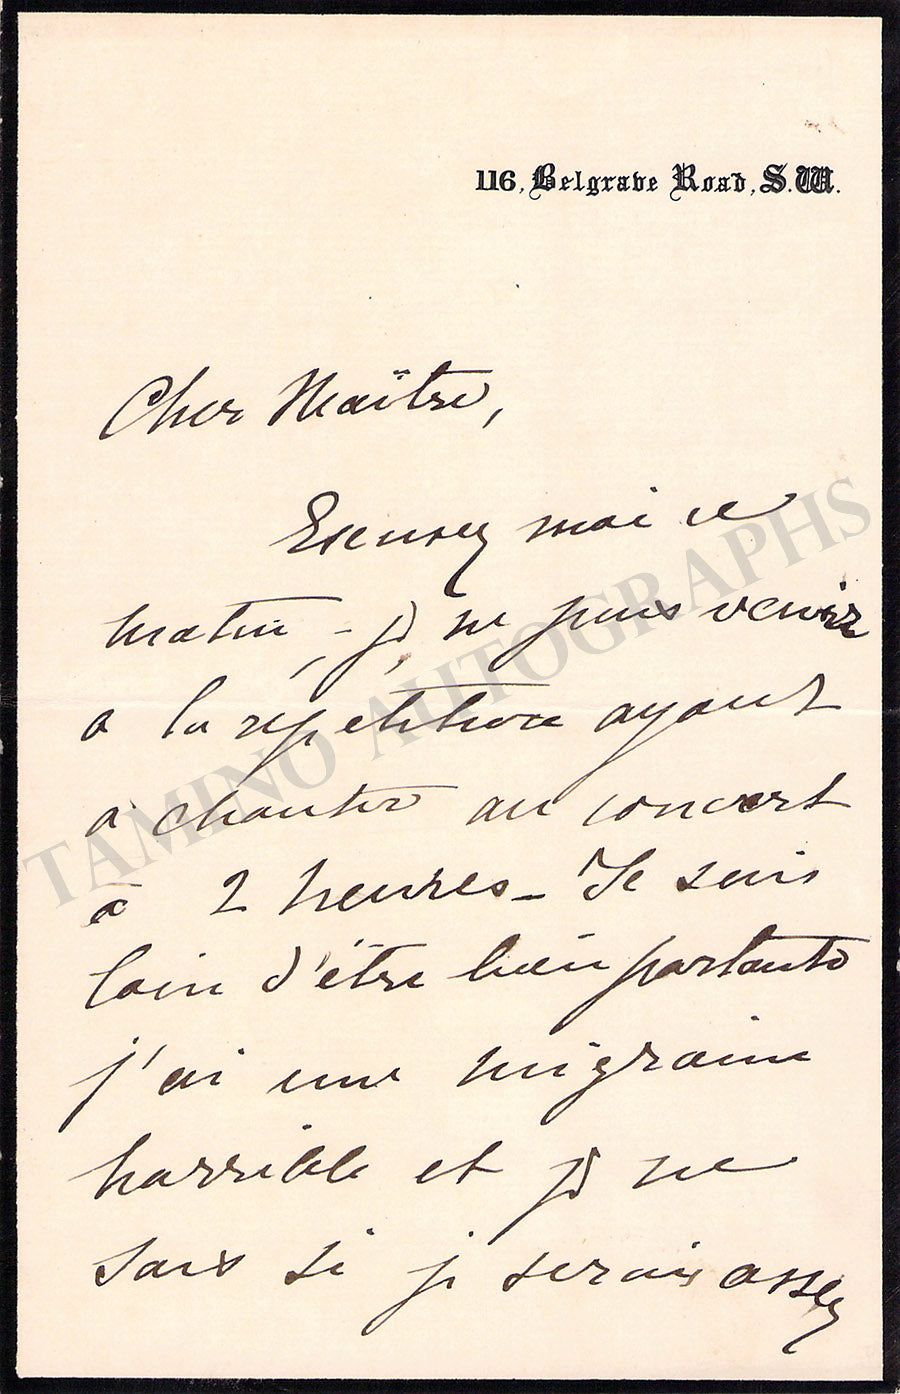 116, Belgrave Road, S.W.
Cher Maître,
Excusez moi ce
matin, - je ne puis venir
a la répétition ayant
a chanter au concert
à 2 heures - Je suis
loin d'être bien portante
j'ai une migraine
horrible et je ne
sais si je serais assez
TAMINO AUTOGRAPHS